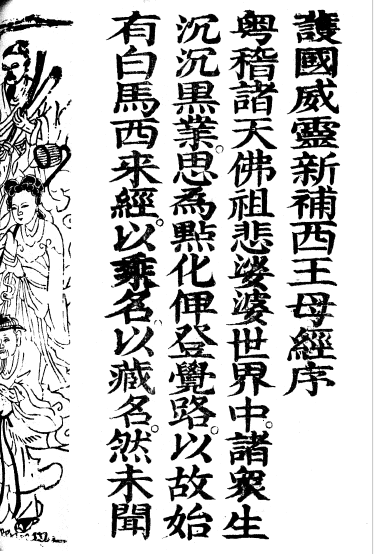 護國威靈新補西王母經序
粤稽諸天佛祖悲婆婆世界中。諸衆生
沉沉黒業。思爲㸃化俾登覺路。以故始
有白馬西来經。以乘名以藏名。然未聞